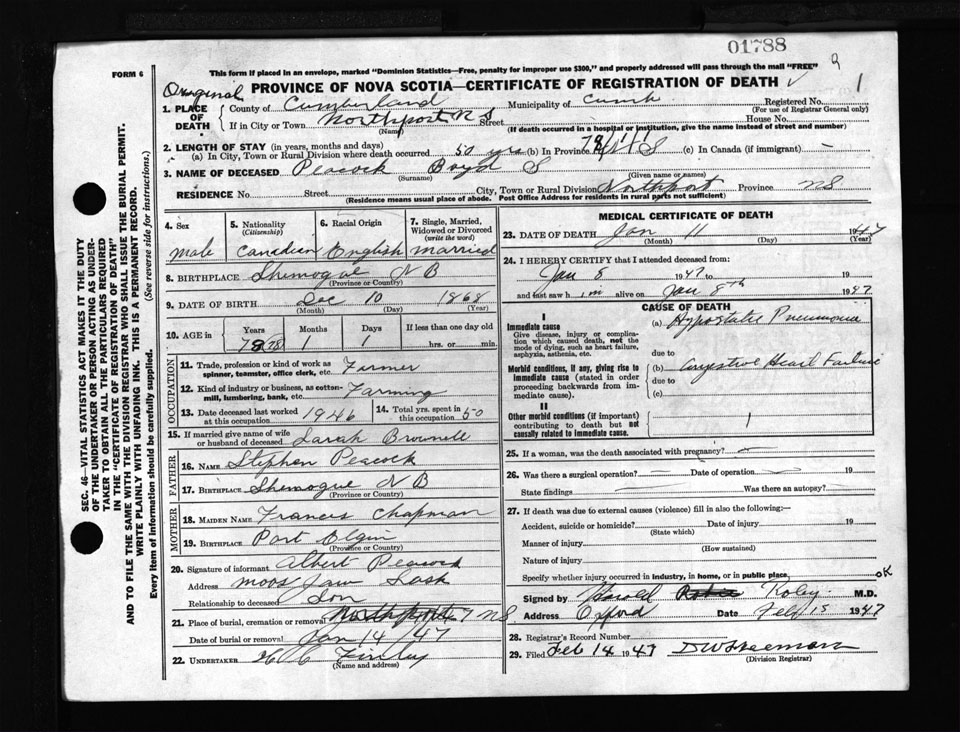 01788
FORM 6
This form if placed in an envelope, marked "Dominion Statistics—Free, penalty for improper use $300," and properly addressed will pass through the mail "FREE"
Original PROVINCE OF NOVA SCOTIA—CERTIFICATE OF REGISTRATION OF DEATH
1. PLACE OF DEATH County of Cumberland Municipality of Cumb Registered No. 1
(For use of Registrar General only)
If in City or Town Northport N S Street House No.
(Name) (If death occurred in a hospital or institution, give the name instead of street and number)
2. LENGTH OF STAY (in years, months and days)
(a) In City, Town or Rural Division where death occurred 50 yrs (b) In Province 78/1/1 (c) In Canada (if immigrant) –
3. NAME OF DECEASED Peacock Boyd S
(Surname) (Given name or names)
RESIDENCE No. Street City, Town or Rural Division Northport Province NS
(Residence means usual place of abode. Post Office Address for residents in rural parts not sufficient)
4. Sex
male
5. Nationality
(Citizenship)
Canadian
6. Racial Origin
English
7. Single, Married, Widowed or Divorced
(write the word)
married
8. BIRTHPLACE Shemogue N B
(Province or Country)
9. DATE OF BIRTH Dec 10 1868
(Month) (Day) (Year)
10. AGE in Years Months Days If less than one day old
78 1 1 hrs. or min.
OCCUPATION
11. Trade, profession or kind of work as spinner, teamster, office clerk, etc. Farmer
12. Kind of industry or business, as cotton-mill, lumbering, bank, etc. Farming
13. Date deceased last worked at this occupation 1946 14. Total yrs. spent in this occupation 50
15. If married give name of wife or husband of deceased Sarah Brownell
FATHER
16. NAME Stephen Peacock
17. BIRTHPLACE Shemogue N B
(Province or Country)
MOTHER
18. MAIDEN NAME Francis Chapman
19. BIRTHPLACE Port Elgin
(Province or Country)
20. Signature of informant Albert Peacock
Address Moos Jaw Sask
Relationship to deceased Son
21. Place of burial, cremation or removal Northport NS
Date of burial or removal Jan 14/47
22. UNDERTAKER H C Finley
(Name and address)
MEDICAL CERTIFICATE OF DEATH
23. DATE OF DEATH Jan 11 1947
(Month) (Day) (Year)
24. I HEREBY CERTIFY that I attended deceased from:
Jan 8 1947 to 19
and last saw him alive on Jan 8th 1947
CAUSE OF DEATH
I
Immediate cause
Give disease, injury or complication which caused death, not the mode of dying, such as heart failure, asphyxia, asthenia, etc.
(a) Hypostatic Pneumonia
due to
Morbid conditions, if any, giving rise to immediate cause (stated in order proceeding backwards from immediate cause).
(b) Congestive Heart Failure
due to
(c)
II
Other morbid conditions (if important) contributing to death but not causally related to immediate cause.
25. If a woman, was the death associated with pregnancy?
26. Was there a surgical operation? Date of operation 19
State findings Was there an autopsy?
27. If death was due to external causes (violence) fill in also the following:—
Accident, suicide or homicide? Date of injury 19
(State which)
Manner of injury
(How sustained)
Nature of injury
Specify whether injury occurred in industry, in home, or in public place OK
Signed by Harold Roby M.D.
Address Oxford Date Feb 15 1947
28. Registrar's Record Number
29. Filed Feb 14 1947
(Division Registrar)
SEC. 46—VITAL STATISTICS ACT MAKES IT THE DUTY
OF THE UNDERTAKER OR PERSON ACTING AS UNDER-
TAKER TO OBTAIN ALL THE PARTICULARS REQUIRED
IN THE "CERTIFICATE OF REGISTRATION OF DEATH"
AND TO FILE THE SAME WITH THE DIVISION REGISTRAR WHO SHALL ISSUE THE BURIAL PERMIT.
WRITE PLAINLY WITH UNFADING INK. THIS IS A PERMANENT RECORD.
Every item of information should be carefully supplied. (See reverse side for instructions.)